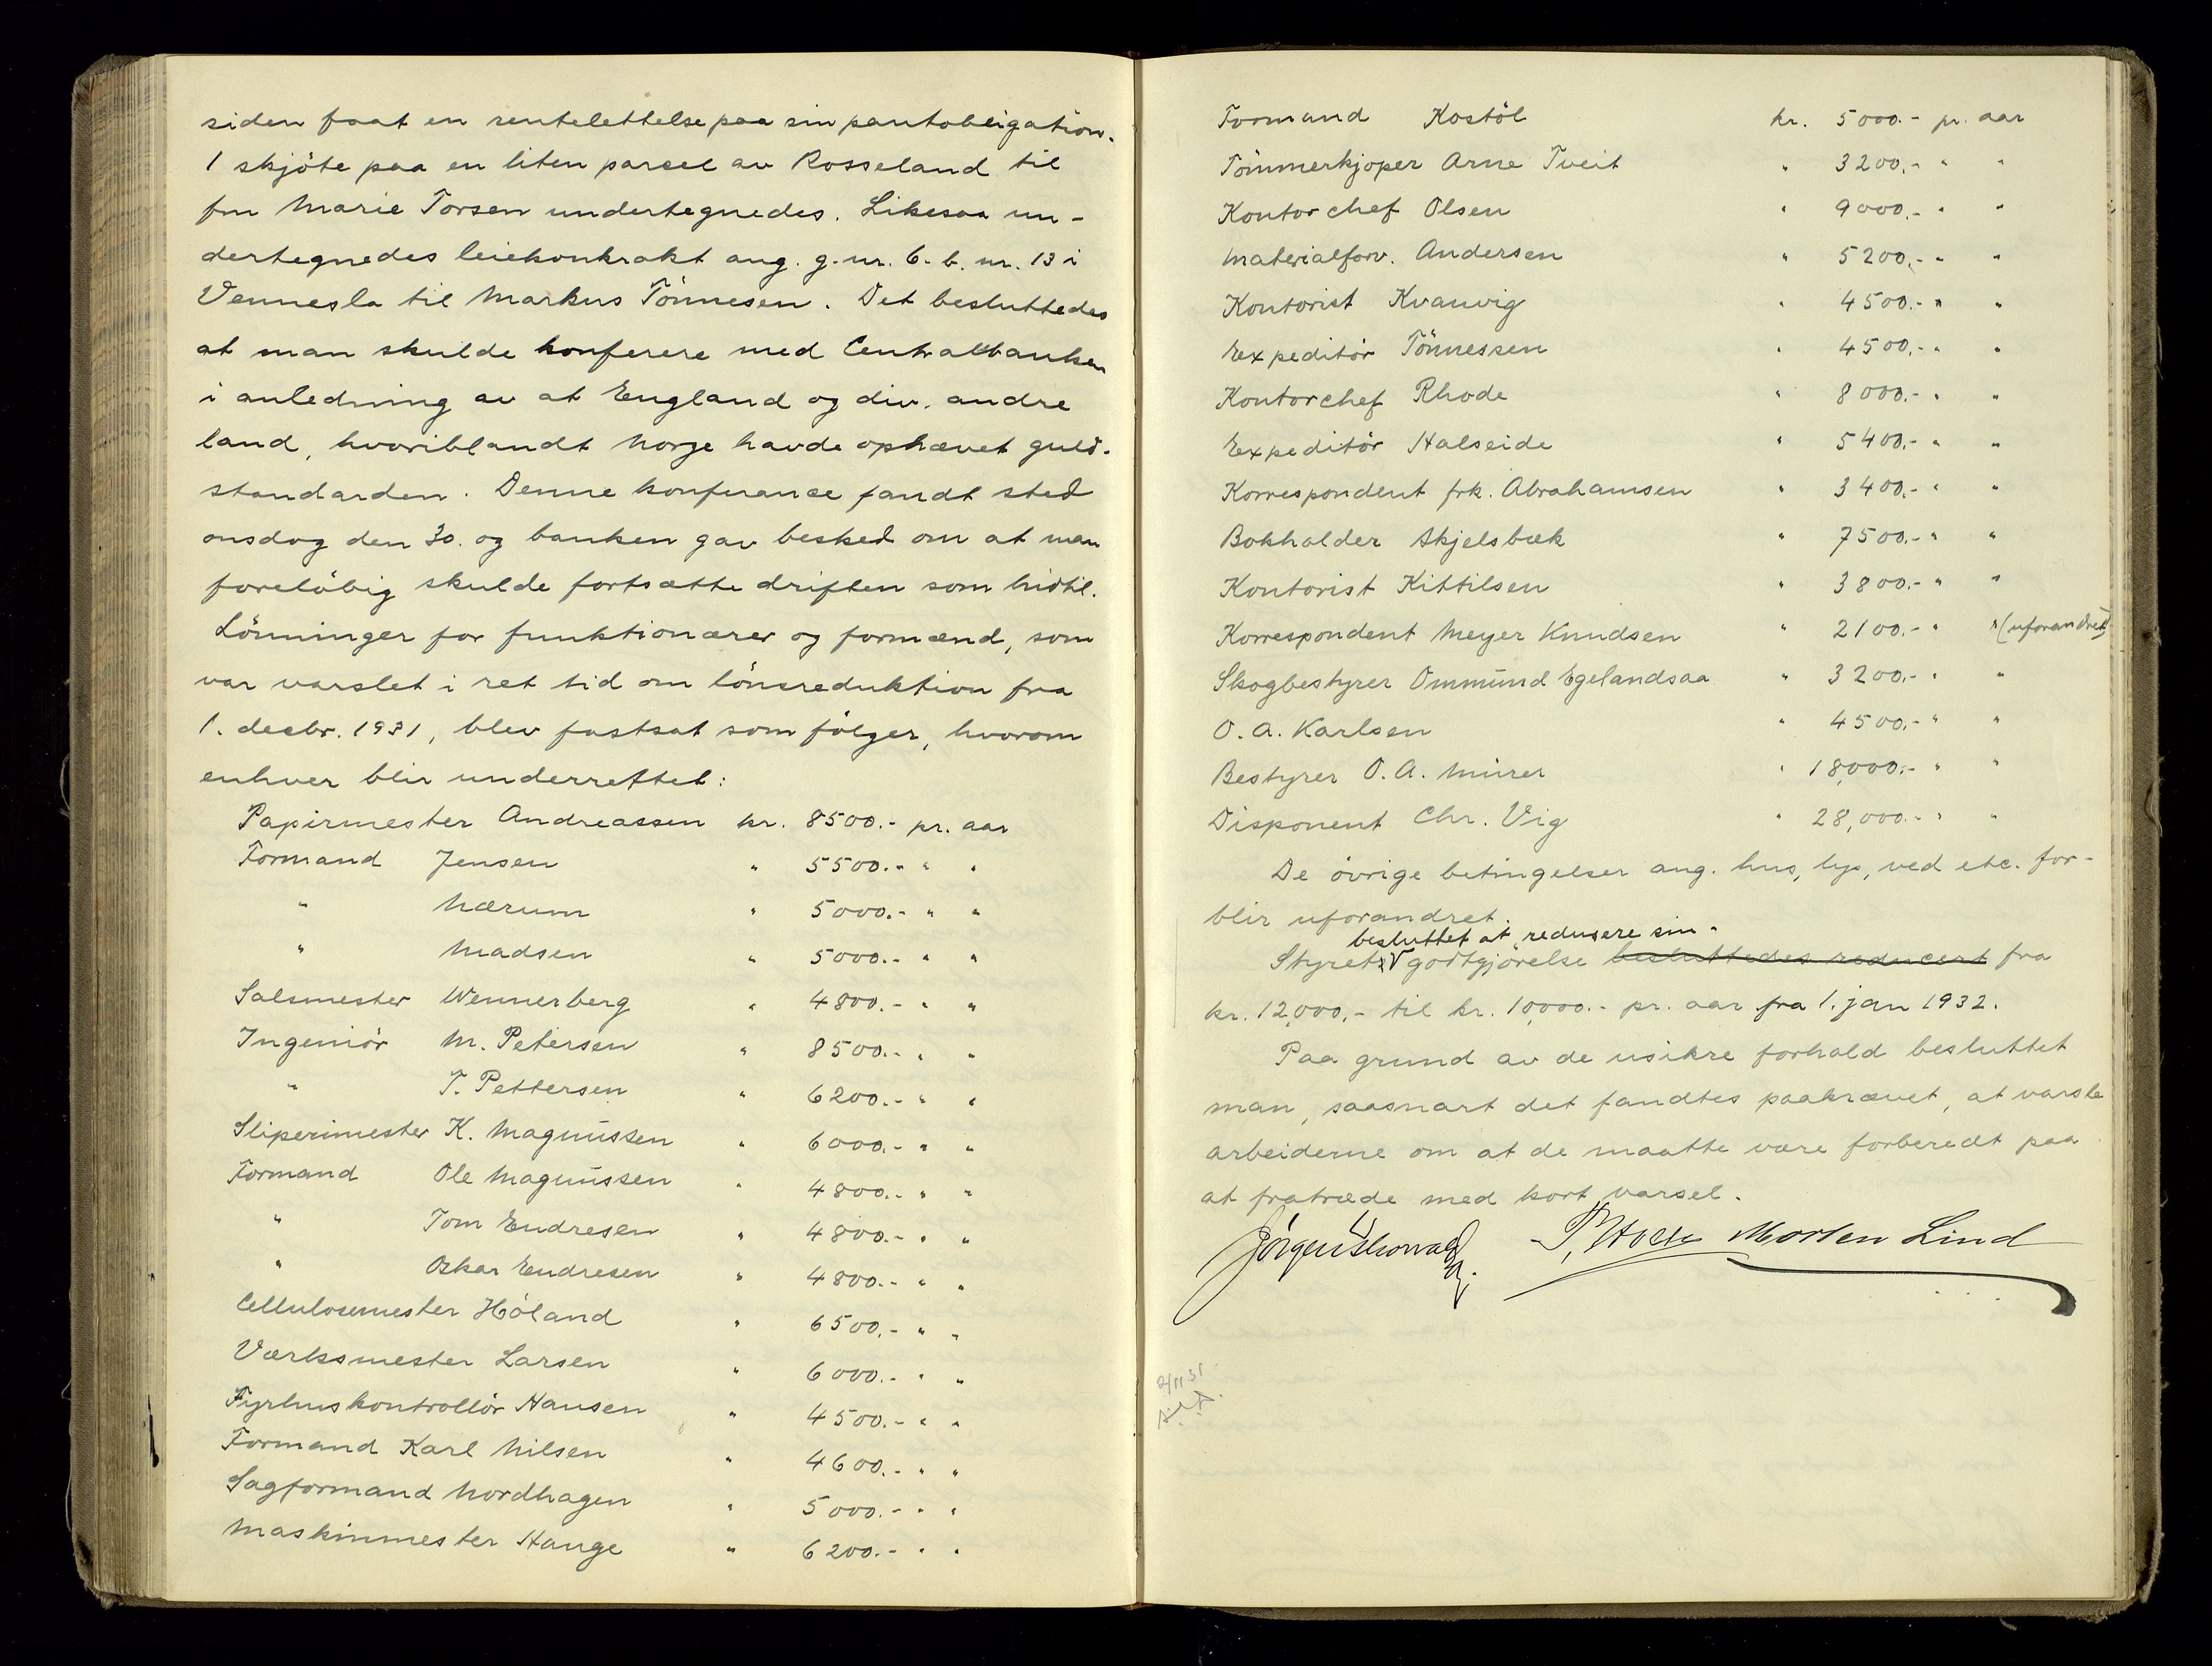 siden faat en rentelettelse paa sin pantobligation.
1 skjöte paa en liten parcel av Rosseland til
fru Marie Torsen undertegnedes. Likesaa un-
dertegnedes leiekontrakt ang. g.nr. 6. b. nr. 13 i
Vennesla til Markus Tönnesen. Det besluttedes
at man skulde konferere med Centralbanken
i anledning av at England og div. andre
land, hvoriblandt Norge havde ophævet guld-
standarden. Denne konferance fandt sted
onsdag den 30. og banken gav besked om at man
foreløbig skulde fortsætte driften som hidtil.
Lönninger for funktionærer og formænd, som
var varslet i ret tid om lönsreduktion fra
1. decbr. 1931, blev fastsat som fölger, hvorom
enhver blir underrettet:
Papirmester Andreassen kr. 8500.- pr. aar
Formand Jensen " 5500.- " "
" Nærum " 5000.- " "
" Madsen " 5000.- " "
Salsmester Wennerberg " 4800.- " "
Ingeniör M. Petersen " 8500.- " "
" T. Pettersen " 6200.- " "
Sliperimester K. Magnussen " 6000.- " "
Formand Ole Magnussen " 4800.- " "
" Tom Endresen " 4800.- " "
" Oskar Endresen " 4800.- " "
Cellulosemester Höland " 6500.- " "
Værksmester Larsen " 6000.- " "
Fyrhuskontrollör Hansen " 4500.- " "
Formand Karl Nilsen " 4600.- " "
Sagformand Nordhagen " 5000.- " "
Maskinmester Hauge " 6200.- " "
Formand Kostöl kr. 5000.- pr. aar
Tömmerkjøper Arne Tveit " 3200.- " "
Kontorchef Olsen " 9000.- " "
Materialforv. Andersen " 5200.- " "
Kontorist Kvanvig " 4500.- " "
Expeditör Tönnessen " 4500.- " "
Kontorchef Rhode " 8000.- " "
Expeditör Halseide " 5400.- " "
Korrespondent frk. Abrahamsen " 3400.- " "
Bokholder Skjelsbæk " 7500.- " "
Kontorist Kittilsen " 3800.- " "
Korrespondent Meyer Knudsen " 2100.- " " (uforandret)
Skogbestyrer Ommund Egelandsaa " 3200.- " "
O. A. Karlsen " 4500.- " "
Bestyrer O. A. Murer " 18,000.- " "
Disponent Chr. Vig " 28,000.- " "
De övrige betingelser ang. hus, lys, ved etc. for-
blir uforandret.
besluttet at redusere sin
Styret godtgjörelse besluttedes reducert fra
kr. 12,000.- til kr. 10,000.- pr. aar fra 1. jan 1932.
Paa grund av de usikre forhold besluttet
man, saasnart det fandtes paakrævet, at varsle
arbeiderne om at de maatte være forberedt paa
at fratræde med kort varsel.
Morten Lind
2/11 31